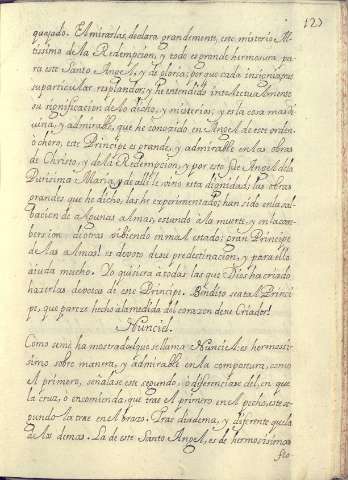 123
quajado. El mirarlas, declara grandemente, este misterio Al-
tissimo de la Redempcion, y todo es grande hermosura pa
ra este Santo Angel, y de gloria; porque cada insignia, tiene
su particular resplandor; y he entendido intelectualmente
su significacion de lo dicho, y misterios, y es la cosa mas di
uina, y admirable, que he conozido en Angel de este orden
o choro, este Principe es grande, y admirable en las obras
de Christo, y de la Redempcion, y por esto fue Angel de la
Purissima Maria, y de alli le vino esta dignidad; las obras
grandes que he dicho, las he experimentado; han sido en la sal
bacion de algunas almas, estando a la muerte, y en la con-
bersion de otras vibiendo en mal estado; gran Principe
de las almas! es devoto de su predestinacion, y para ello
aiuda mucho. Yo quisiera a todas las que Dios ha criado
hazerlas devotas de este Principe. Bendito sea tal Princi
pe, que pareze hecho a la medida del corazon de su Criador!
Nunciel.
Como se me ha mostrado el que se llama Nunciel: es hermosis-
simo sobre manera, y admirable en la compostura, como
el primero, señalase este segundo, o diferenciase del, en que
la cruz, o encomienda, que trae el primero en el pecho, este se-
gundo la trae en el brazo. Trae diadema, y diferente que la
de los demas. La de este Santo Angel, es de hermosissimas
flo-